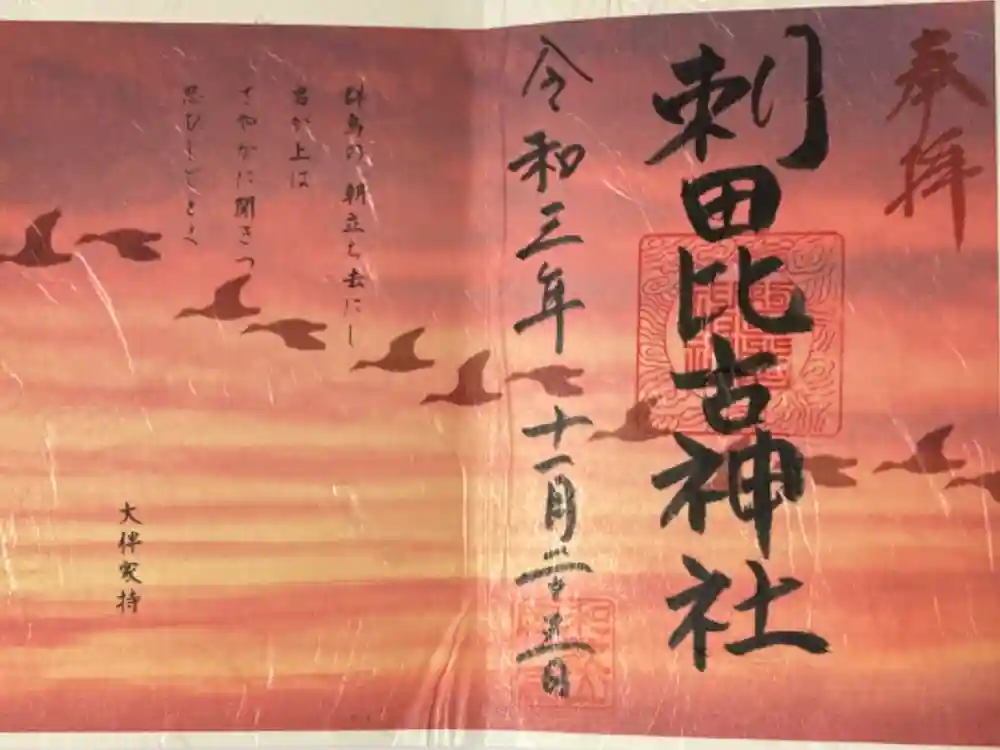 奉拝
刺田比古神社
令和三年十一月二十五日
群鳥の 朝立ち去にし
君が上は
さやかに聞きつ
思ひしごとく
大伴家持